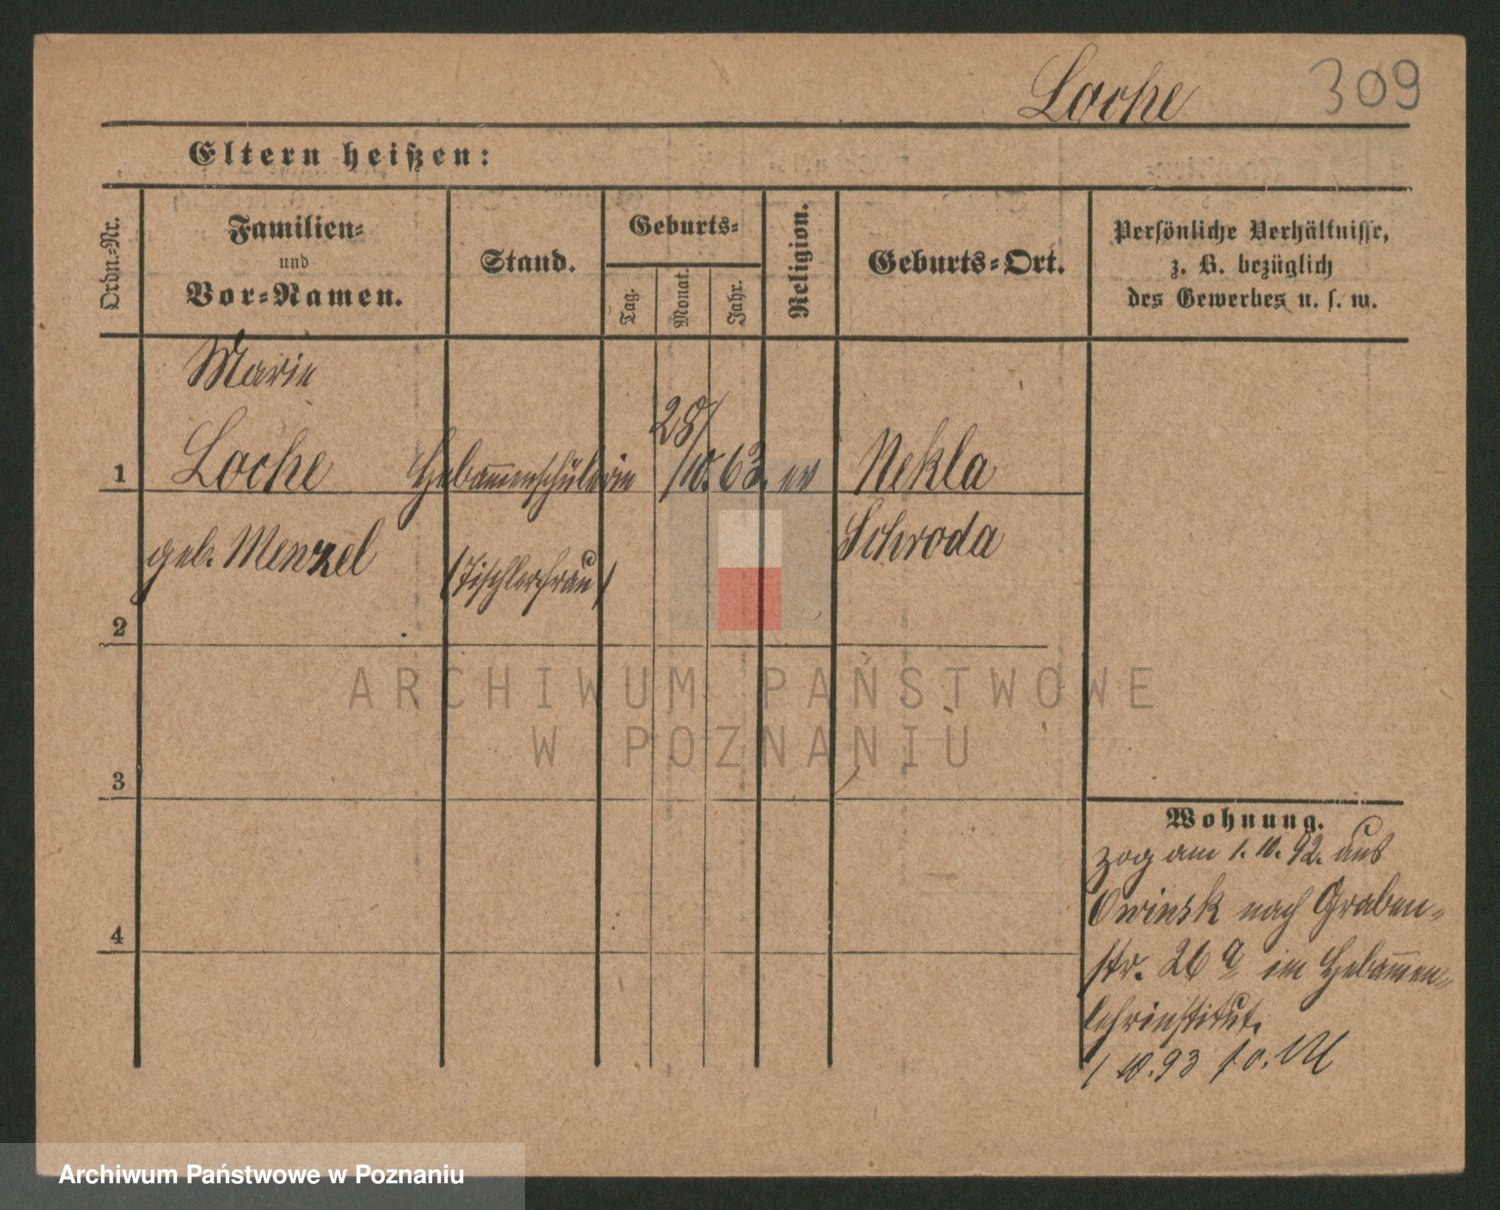 Loche 309
Eltern heißen:
Ordn.-Nr.
Familien-
und
Vor-Namen.
Stand.
Geburts-
Tag.
Monat.
Jahr.
Religion.
Geburts-Ort.
Persönliche Verhältnisse,
z. B. bezüglich
des Gewerbes u. s. w.
Marie
1 Loche Hebam̅enschülerin 28/10.63. ev Nekla
geb. Menzel (Tischlerfrau) Schroda
2
3
4
Wohnung.
zog am 1.10.92. aus
Owinsk nach Graben-
str. 26 a im Hebam̅en-
lehrinstitut.
1 10.93
ARCHIWUM PAŃSTWOWE
W POZNANIU
Archiwum Państwowe w Poznaniu